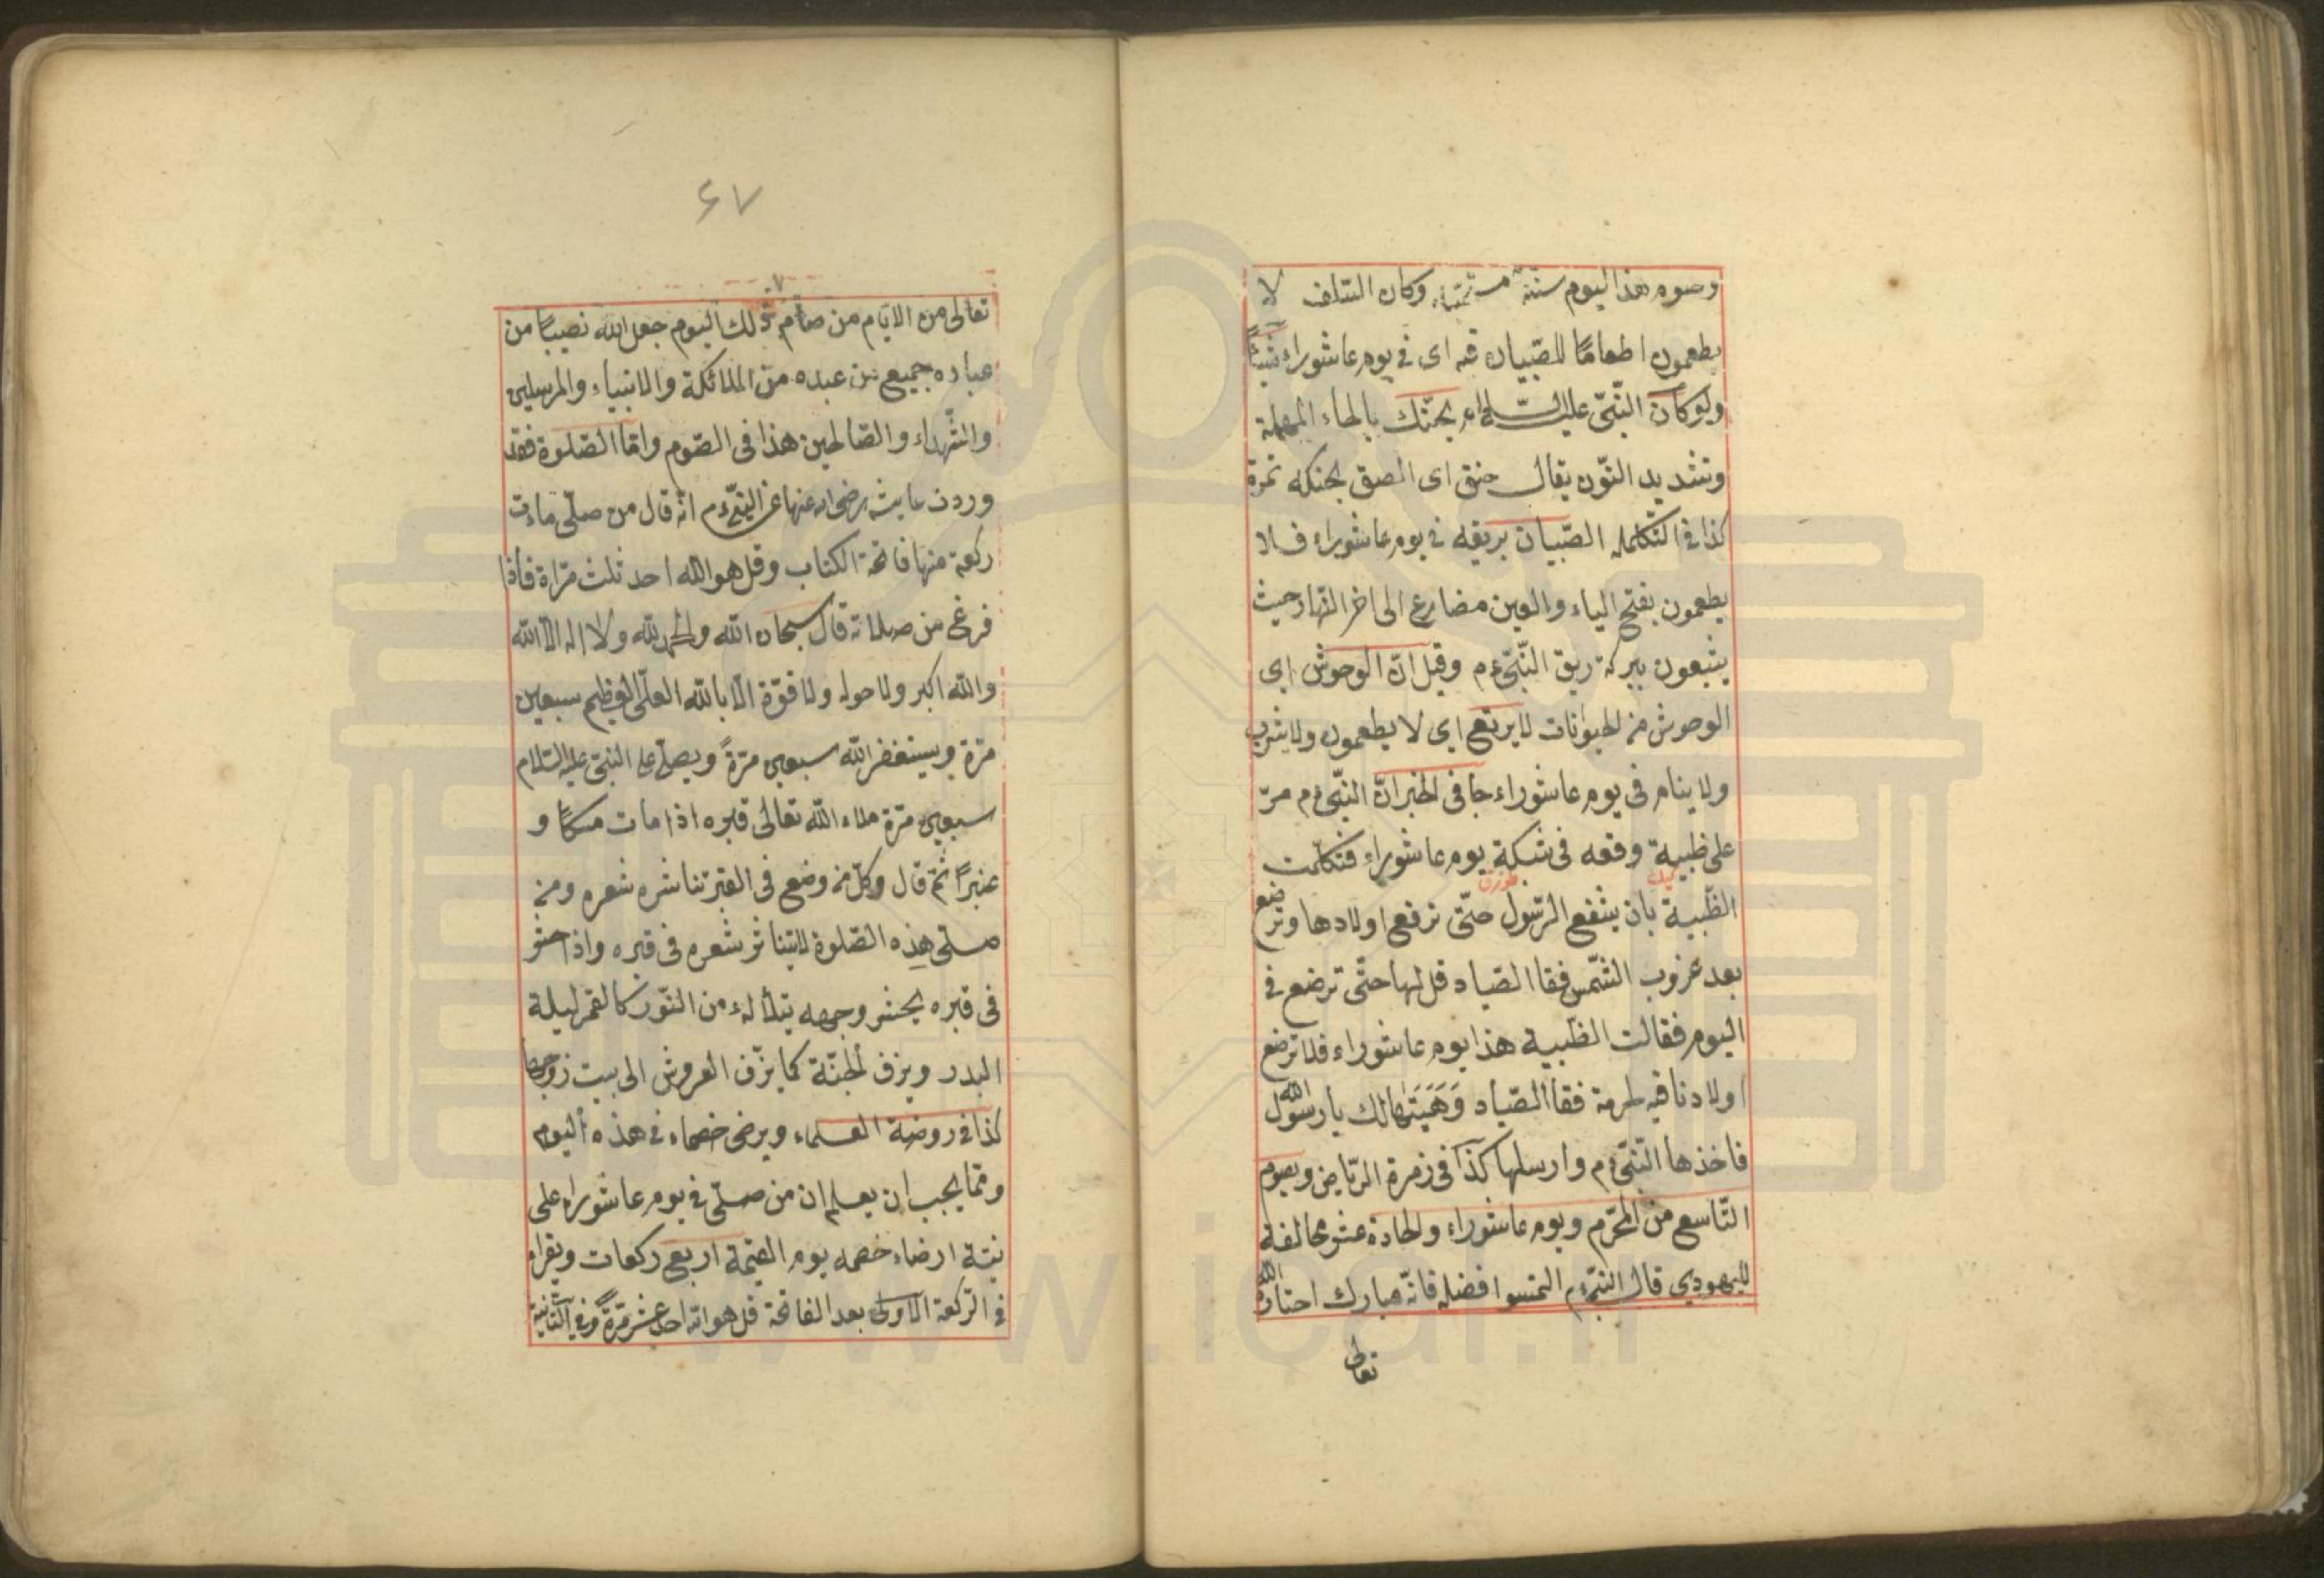 وصوم هذا اليوم سنة وكان السلف لا
يطعمون اطعامًا للصّبيان فيه اى فى يوم عاشوراء شيئًا
ولو كان النّبىّ عليه السلام يحنّك بالحاء المهملة
وتشديد النّون يقال حنق اى الصق بحنكه تمرة
كذا فى التكلمله الصّبيان بريقه فى يوم عاشوراء فلا
يطعمون بفتح الياء والعين مضارع الى اخر النهار حيث
يشبعون ببركة ريق النّبىّ ءم وقيل انّ الوحوش اى
الوحوش من الحيوانات لا يرتع اى لا يطعمون ولا يشرب
ولا ينام فى يوم عاشوراء جا فى الخبر انّ النّبىّ ءم مرّ
على ظبية وقعه فى شبكة يوم عاشوراء فتكلّمت
الظّبية بان يشفع الرّسول حتّى ترفع اولادها وترضع
بعد غروب الشّمس فقا الصّياد قل لها حتّى ترضع فى
اليوم فقالت الظبية هذا يوم عاشوراء فلا ترضع
اولادنا فيه لحرمة فقا الصّياد وَهَبْتُهَا لك يا رسول الله
فاخذها النّبىّ ءم وارسلها كذا فى زمرة الرّياض ويصوم
التّاسع من المحرّم ويوم عاشوراء والحادة عشر مخالفة
لليهودى قال النّبىّ ءم التمسوا افضله فانّه مبارك اختاره الله
تعالى
۶۷
تعالى من الايّام من صام ذلك اليوم جعل الله نصيبًا من
عباده جميع من عبده من الملائكة والانبياء والمرسلين
والشّهداء والصّالحين هذا فى الصّوم وامّا الصّلوة فقد
وردت عايشه رضى الله عنها عن النبىّ ءم انّه قال من صلّى مأت
ركعة منها فاتحة الكتاب وقل هو الله احد ثلث مرّاة فاذا
فرغ من صلاته قال سبحان الله والحمد لله ولا اله الّا الله
والله اكبر ولا حول ولا قوّة الّا بالله العلّى العظيم سبعين
مرّة ويستغفر الله سبعين مرّةً ويصلّ على النبىّ عليه السّلام
سبعين مرّة ملاء الله تعالى قبره اذا مات مسكًا و
عنبرًا ثمّ قال وكلّ من وضع فى القبر تناشره شعره ومن
صلّى هذه الصّلوة لا يتناثر شعره فى قبره واذا حشر
فى قبره يحشر وجهه يتلألاء من النّور كالقمر ليلة
البدر ويزف الجنّة كما يزّف العروش الى بيت زوجها
كذا فى روضة العلماء ويرضى خصماء فى هذه اليوم
وممّا يجب ان يعلم ان من صلّى فى يوم عاشوراء على
نيّة ارضاء خصمه يوم القيمة اربع ركعات ويقراء
فى الرّكعة الاولى بعد الفاتحة قل هو الله احد عشر مرّةً وفى الثّانية